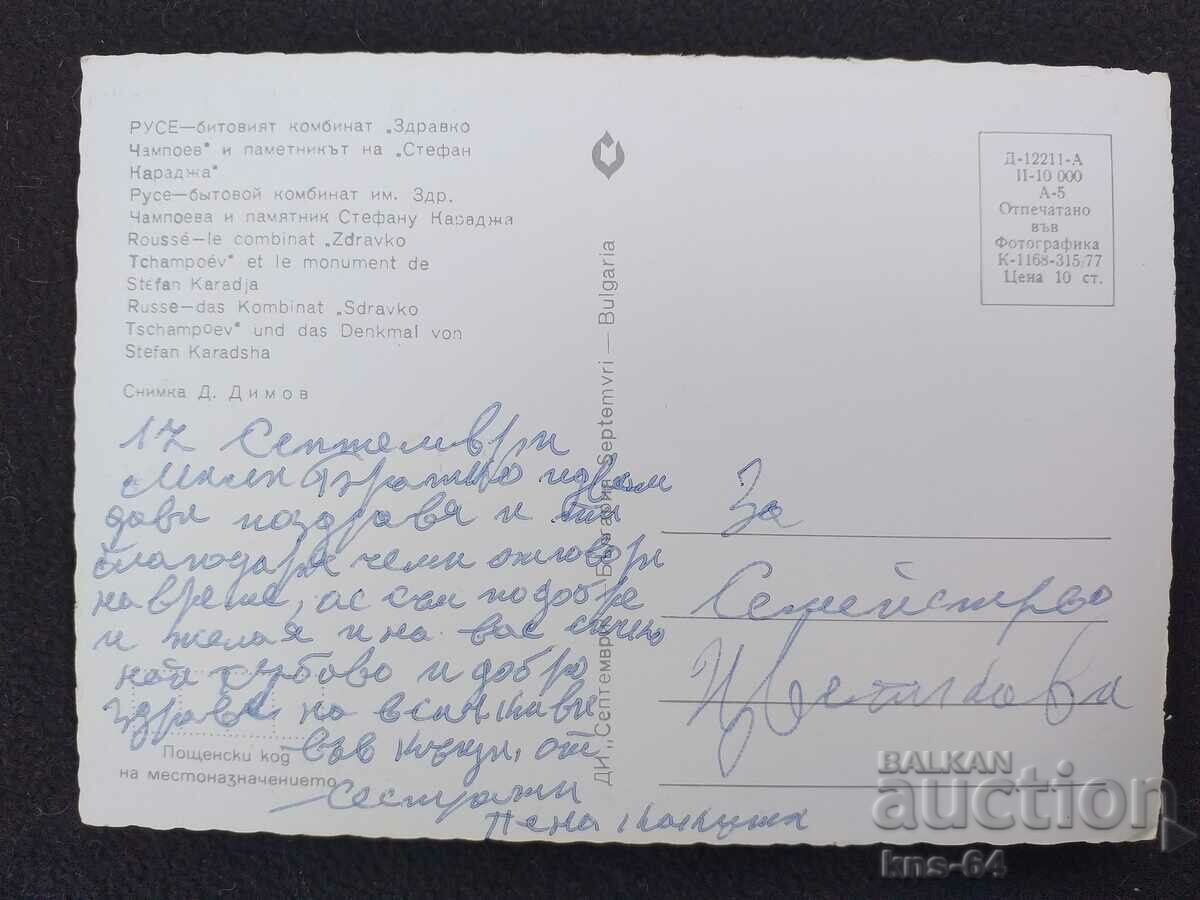 РУСЕ—битовият комбинат „Здравко
Чампоев“ и паметникът на „Стефан
Караджа“
Русе—бытовой комбинат им. Здр.
Чампоева и памятник Стефану Караджи
Roussé—le combinat „Zdravko
Tchampoév“ et le monument de
Stéfan Karadja
Russe—das Kombinat „Sdravko
Tschampoev“ und das Denkmal von
Stefan Karadsha
Снимка Д. Димов
17 Септември
Мили Братко
дави поздравя и ти
благодаря чеми отговори
на време, ас съм по добре
и желая и на вас
най хубово и добро
здраве на всички
във къщи, от
сестрати
Пена
Пощенски код
на местоназначението
ДИ „Септември“ — България Septemvri — Bulgaria
Д-12211-А
II-10 000
А-5
Отпечатано
във
Фотографика
К-1168-315/77
Цена 10 ст.
За
Семейство
Цветкови
BALKAN
auction
kns-64